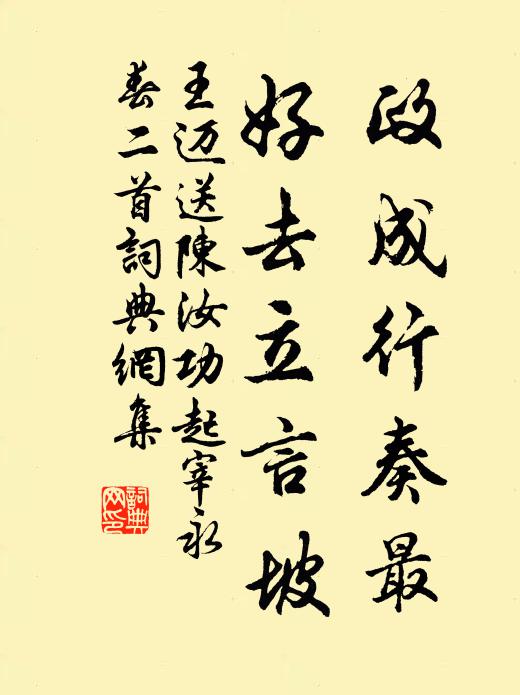 政成行奏最
好去立言坡
王迈送陳汝功起宰永
春二首詞典網集
詞典
网印